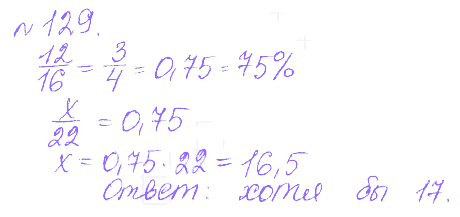 №129.
12/16 = 3/4 = 0,75 = 75%
x/22 = 0,75
x = 0,75 · 22 = 16,5
Ответ: хотя бы 17.